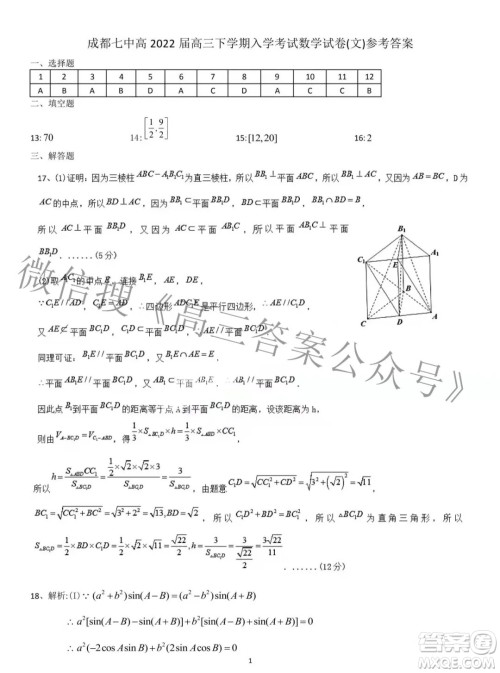 成都七中高 2022 届高三下学期入学考试数学试卷(文)参考答案
一、选择题
1 2 3 4 5 6 7 8 9 10 11 12
A B A B C D C B D A B C
二、填空题
13: 70 14: [1/2, 9/2] 15: [12,20] 16: 2
三、解答题
17、(1)证明：因为三棱柱 ABC－A₁B₁C₁ 为直三棱柱，所以 BB₁⊥平面 ABC，所以 BB₁⊥AC，又因为 AB＝BC，D 为
AC 的中点，所以 BD⊥AC，又因为 BB₁⊂平面 BB₁D，BD⊂平面 BB₁D，BB₁∩BD＝B，
所以 AC⊥平面 BB₁D，又因为 AC⊂平面 AB₁C，所以平面 AB₁C⊥
平面 BB₁D. ......(5分)
(2)取 A₁C₁ 的中点 E，连接 B₁E，AE，DE，
∵C₁E//AD，C₁E＝AD，∴四边形 是平行四边形，∴AE//C₁D，
又 AE⊄平面 BC₁D，C₁D⊂平面 BC₁D，∴AE//平面 BC₁D，
同理可证：B₁E//平面 BC₁D，
∴平面 //平面 BC₁D，
因此点 到平面 BC₁D 的距离等于点 A 到平面 BC₁D 的距离，设该距离为 h，
则由 ，得 1/3×S△BC₁D×h＝1/3×S△ABD×CC₁，
所以 由题意 C₁D＝√(CC₁²＋CD²)＝√(3²＋(√2)²)＝√11，
BC₁＝√(CC₁²＋BC²)＝√(3²＋2²)＝√13，BD＝√2，所以 C₁D²＋BD²＝BC₁²，所以△BC₁D 为直角三角形，所以
S△BC₁D＝1/2×BD×C₁D＝1/2×√2×√11＝√22/2，所以 ......(12分)
18、解析:(I)∵(a²＋b²)sin(A－B)＝(a²－b²)sin(A＋B)
∴a²[sin(A－B)－sin(A＋B)]＋b²[sin(A－B)＋sin(A＋B)]＝0
∴a²(－2cosAsinB)＋b²(2sinAcosB)＝0
1
微信搜《高三答案公众号》